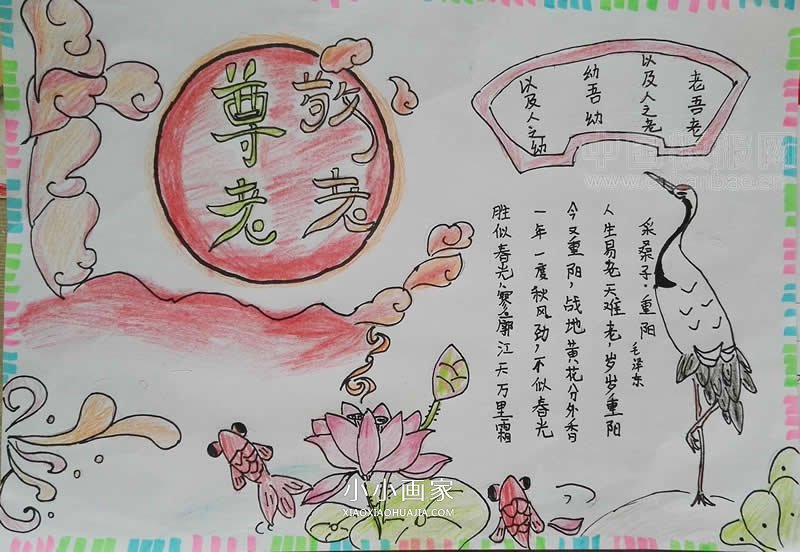 敬老
尊老
老吾老
以及人之老
幼吾幼
以及人之幼
采桑子·重阳
毛泽东
人生易老天难老,岁岁重阳
今又重阳,战地黄花分外香
一年一度秋风劲,不似春光
胜似春光,寥廓江天万里霜
小小画家
XIAOXIAOHUAJIA.COM